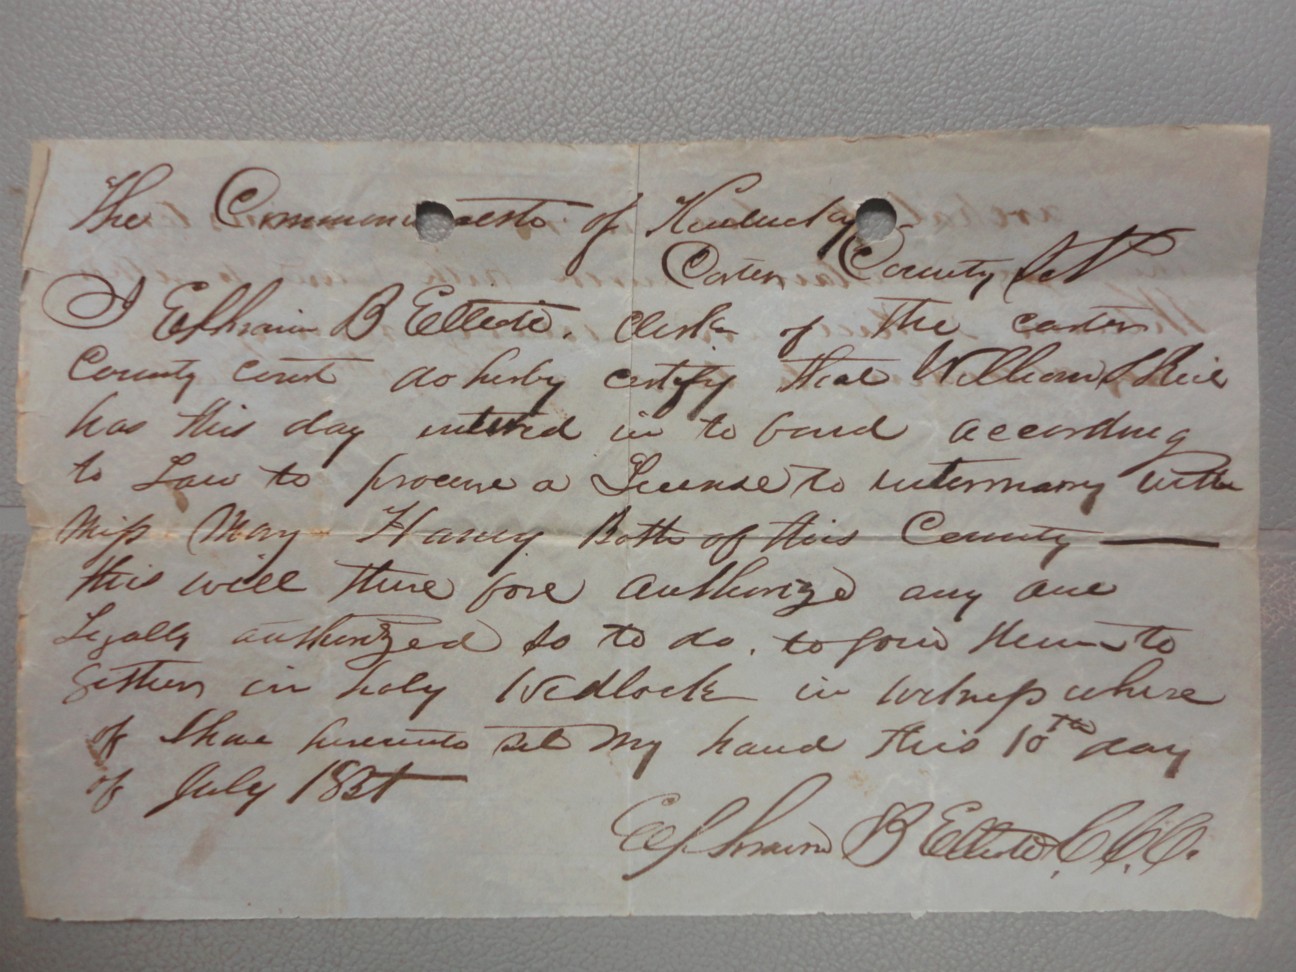 The Common ealth of Kentucky
Carter County Sct
I Ephraim B Elliott. Clerk of the carter
County court do herby certify that William
has this day entered in to bond according
to Law to procure a License to intermarry with
Miss Mary Haney Both of this County
this will there fore authorize any one
Legally authorized so to do. to join them to
gether in holy Wedlock in witness where
of I have hereunto set my hand this 10th day
of July
Ephraim B Elliott C.C.C.